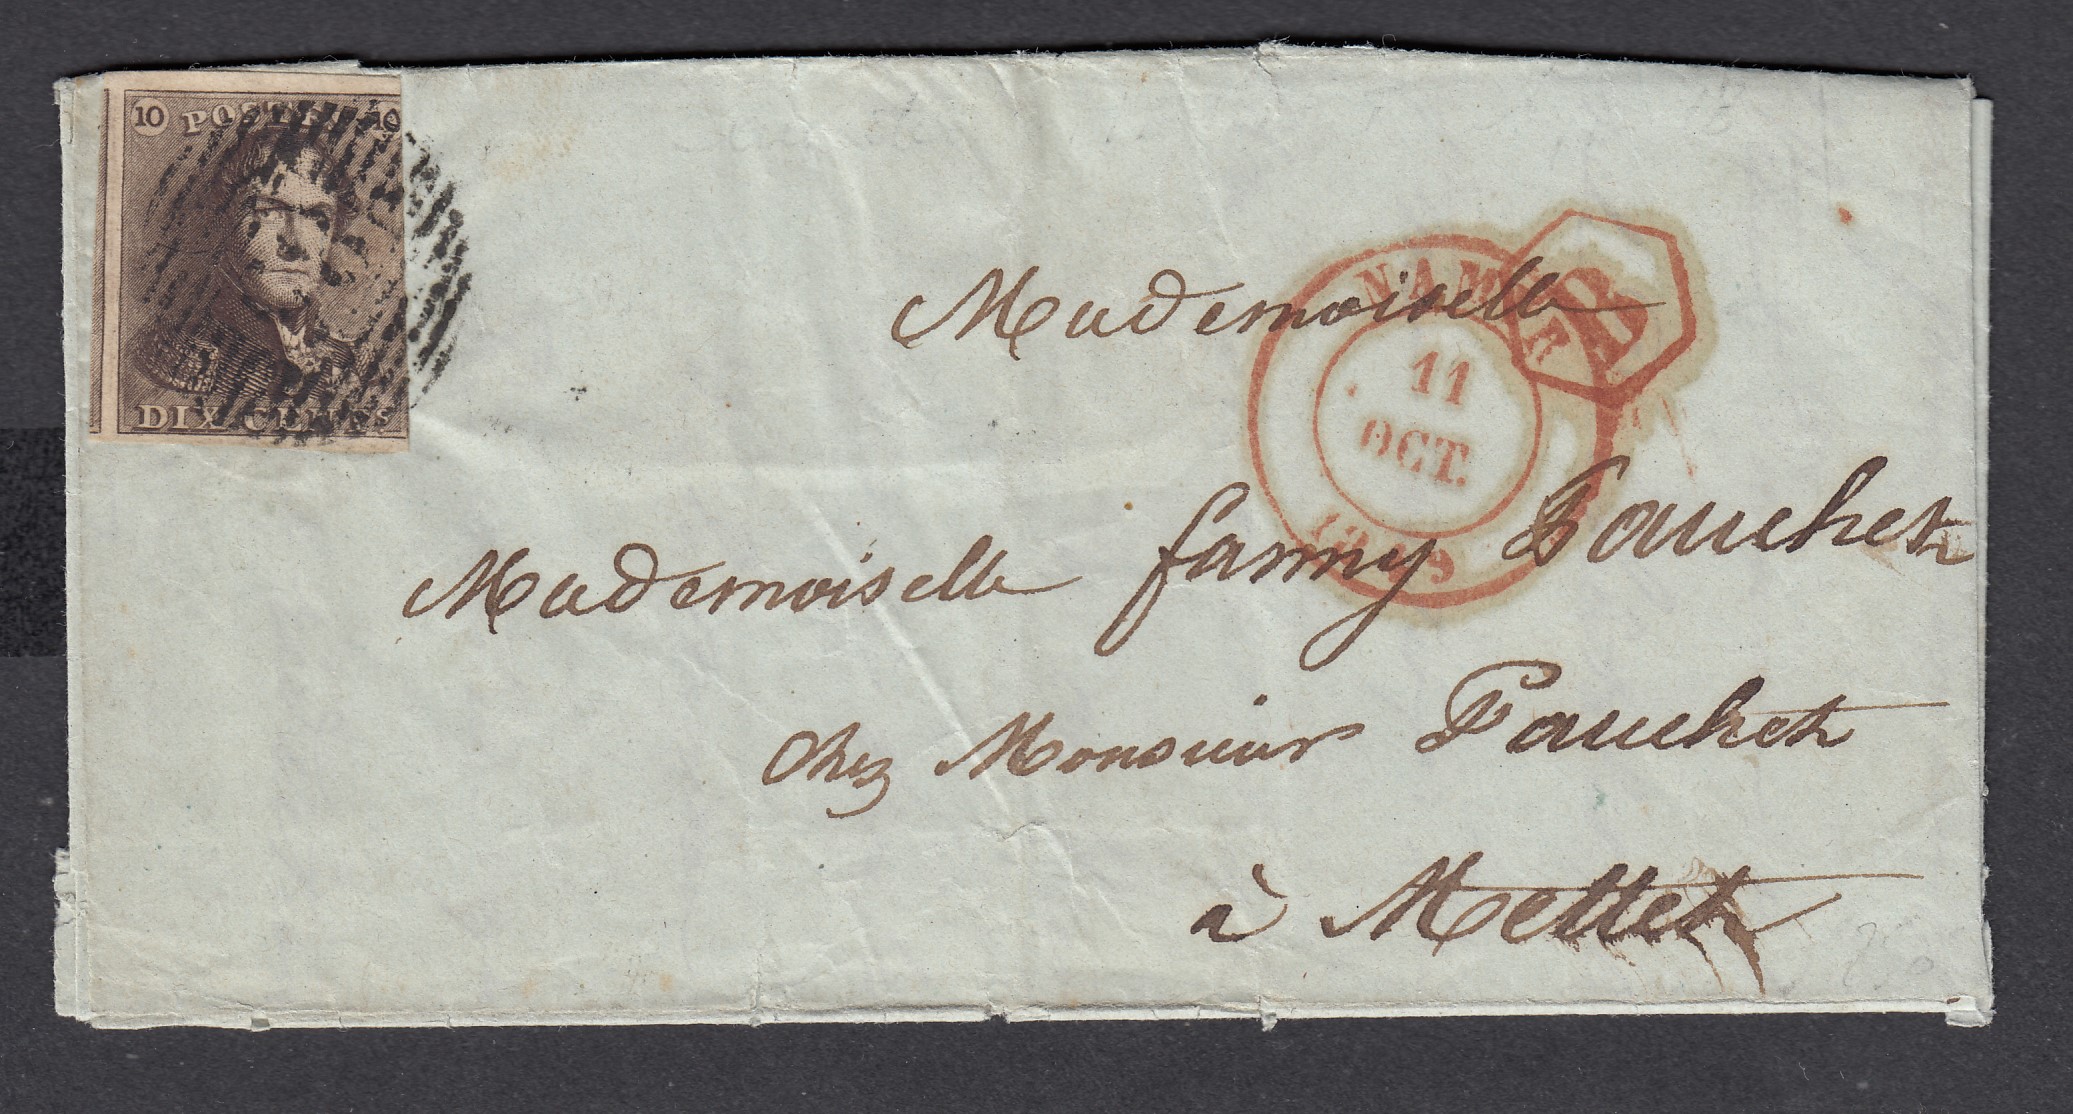 10 POSTES 10
DIX CENTS
NAMUR
11
OCT.
1849
B
Mademoiselle
Mademoiselle fanny Fauchet
Chez Monsieur Fauchet
à Mettet